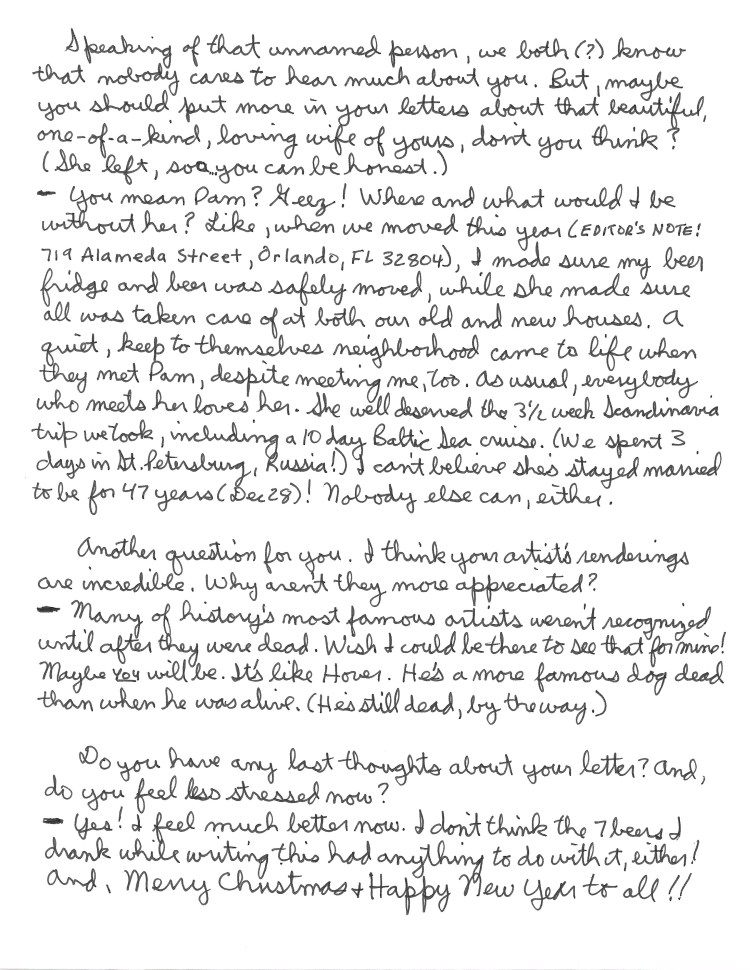 Speaking of that unnamed person, we both (?) know
that nobody cares to hear much about you. But, maybe
you should put more in your letters about that beautiful,
one-of-a-kind, loving wife of yours, don't you think?
(She left, soo...you can be honest.)
- You mean Pam? Geez! Where and what would I be
without her? Like, when we moved this year (EDITOR'S NOTE!
719 Alameda Street, Orlando, FL 32804), I made sure my beer
fridge and beer was safely moved, while she made sure
all was taken care of at both our old and new houses. A
quiet, keep to themselves neighborhood came to life when
they met Pam, despite meeting me, too. As usual, everybody
who meets her loves her. She well deserved the 3½ week Scandinavia
trip we took, including a 10 day Baltic Sea cruise. (We spent 3
days in St. Petersburg, Russia!) I can't believe she's stayed married
to be for 47 years (Dec 28)! Nobody else can, either.
Another question for you. I think your artist's renderings
are incredible. Why aren't they more appreciated?
- Many of history's most famous artists weren't recognized
until after they were dead. Wish I could be there to see that for mine!
Maybe you will be. It's like Hover. He's a more famous dog dead
than when he was alive. (He's still dead, by the way.)
Do you have any last thoughts about your letter? And,
do you feel less stressed now?
- Yes! I feel much better now. I don't think the 7 beers I
drank while writing this had anything to do with it, either!
And, Merry Christmas + Happy New Year to all!!